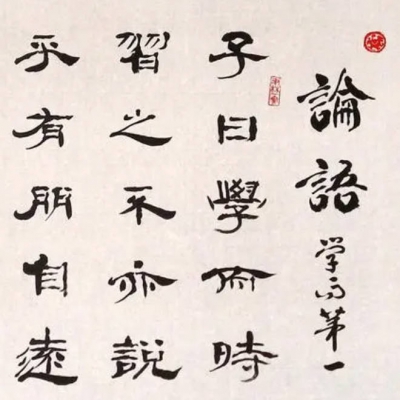 論語 学而第一
子曰學而時
習之不亦說
乎有朋自遠